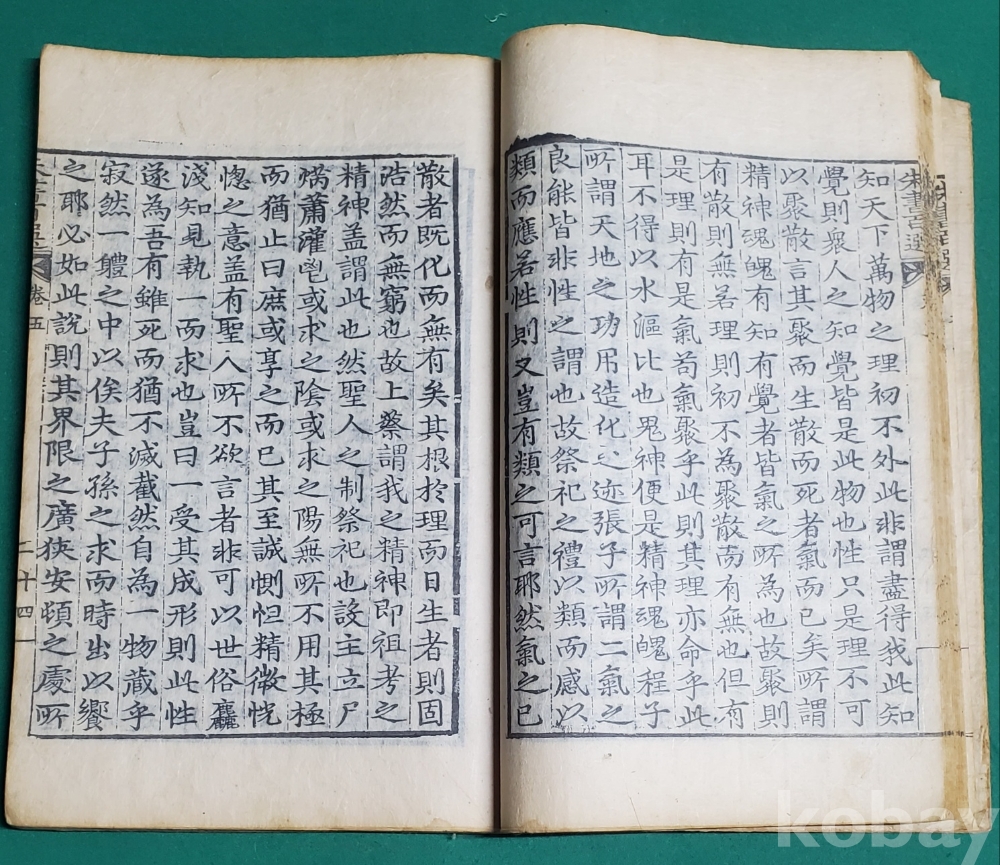 知天下萬物之理初不外此非謂盡得我此知
覺則衆人之知覺皆是此物也性只是理不可
以聚散言其聚而生散而死者氣而已矣所謂
精神魂魄有知有覺者皆氣之所為也故聚則
有散則無若理則初不為聚散而有無也但有
是理則有是氣苟氣聚乎此則其理亦命乎此
耳不得以水漚比也鬼神便是精神魂魄程子
所謂天地之功用造化之迹張子所謂二氣之
良能皆非性之謂也故祭祀之禮以類而感以
類而應若性則又豈有類之可言耶然氣之已
散者既化而無有矣其根於理而日生者則固
浩然而無窮也故上蔡謂我之精神即祖考之
精神盖謂此也然聖人之制祭祀也設主立尸
焫蕭灌鬯或求之陰或求之陽無所不用其極
而猶止曰庶或享之而已其至誠惻怛精微恍
惚之意盖有聖人所不欲言者非可以世俗麤
淺知見執一而求也豈曰一受其成形則此性
遂為吾有雖死而猶不滅截然自為一物藏乎
寂然一軆之中以俟夫子孫之求而時出以饗
之耶必如此說則其界限之廣狹安頓之處所
卷五
二十四
朱書百選
kobay